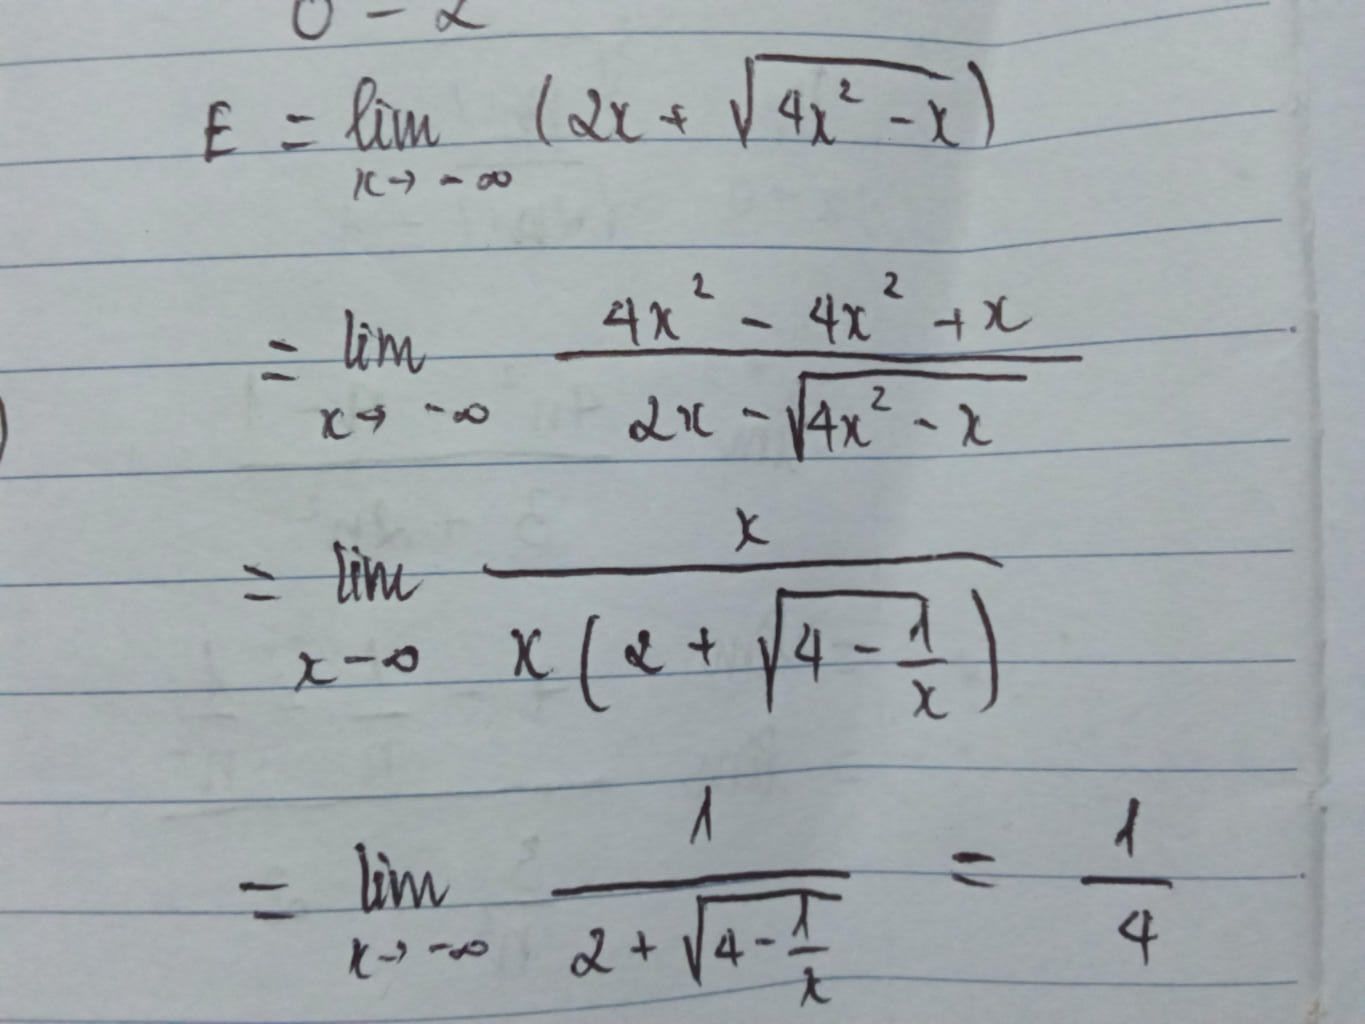 0 - 2
E = lim (2x + √(4x² - x))
x → -∞
= lim (4x² - 4x² + x) / (2x - √(4x² - x))
x → -∞
= lim x / (x(2 + √(4 - 1/x)))
x -∞
= lim 1 / (2 + √(4 - 1/x)) = 1/4
x → -∞